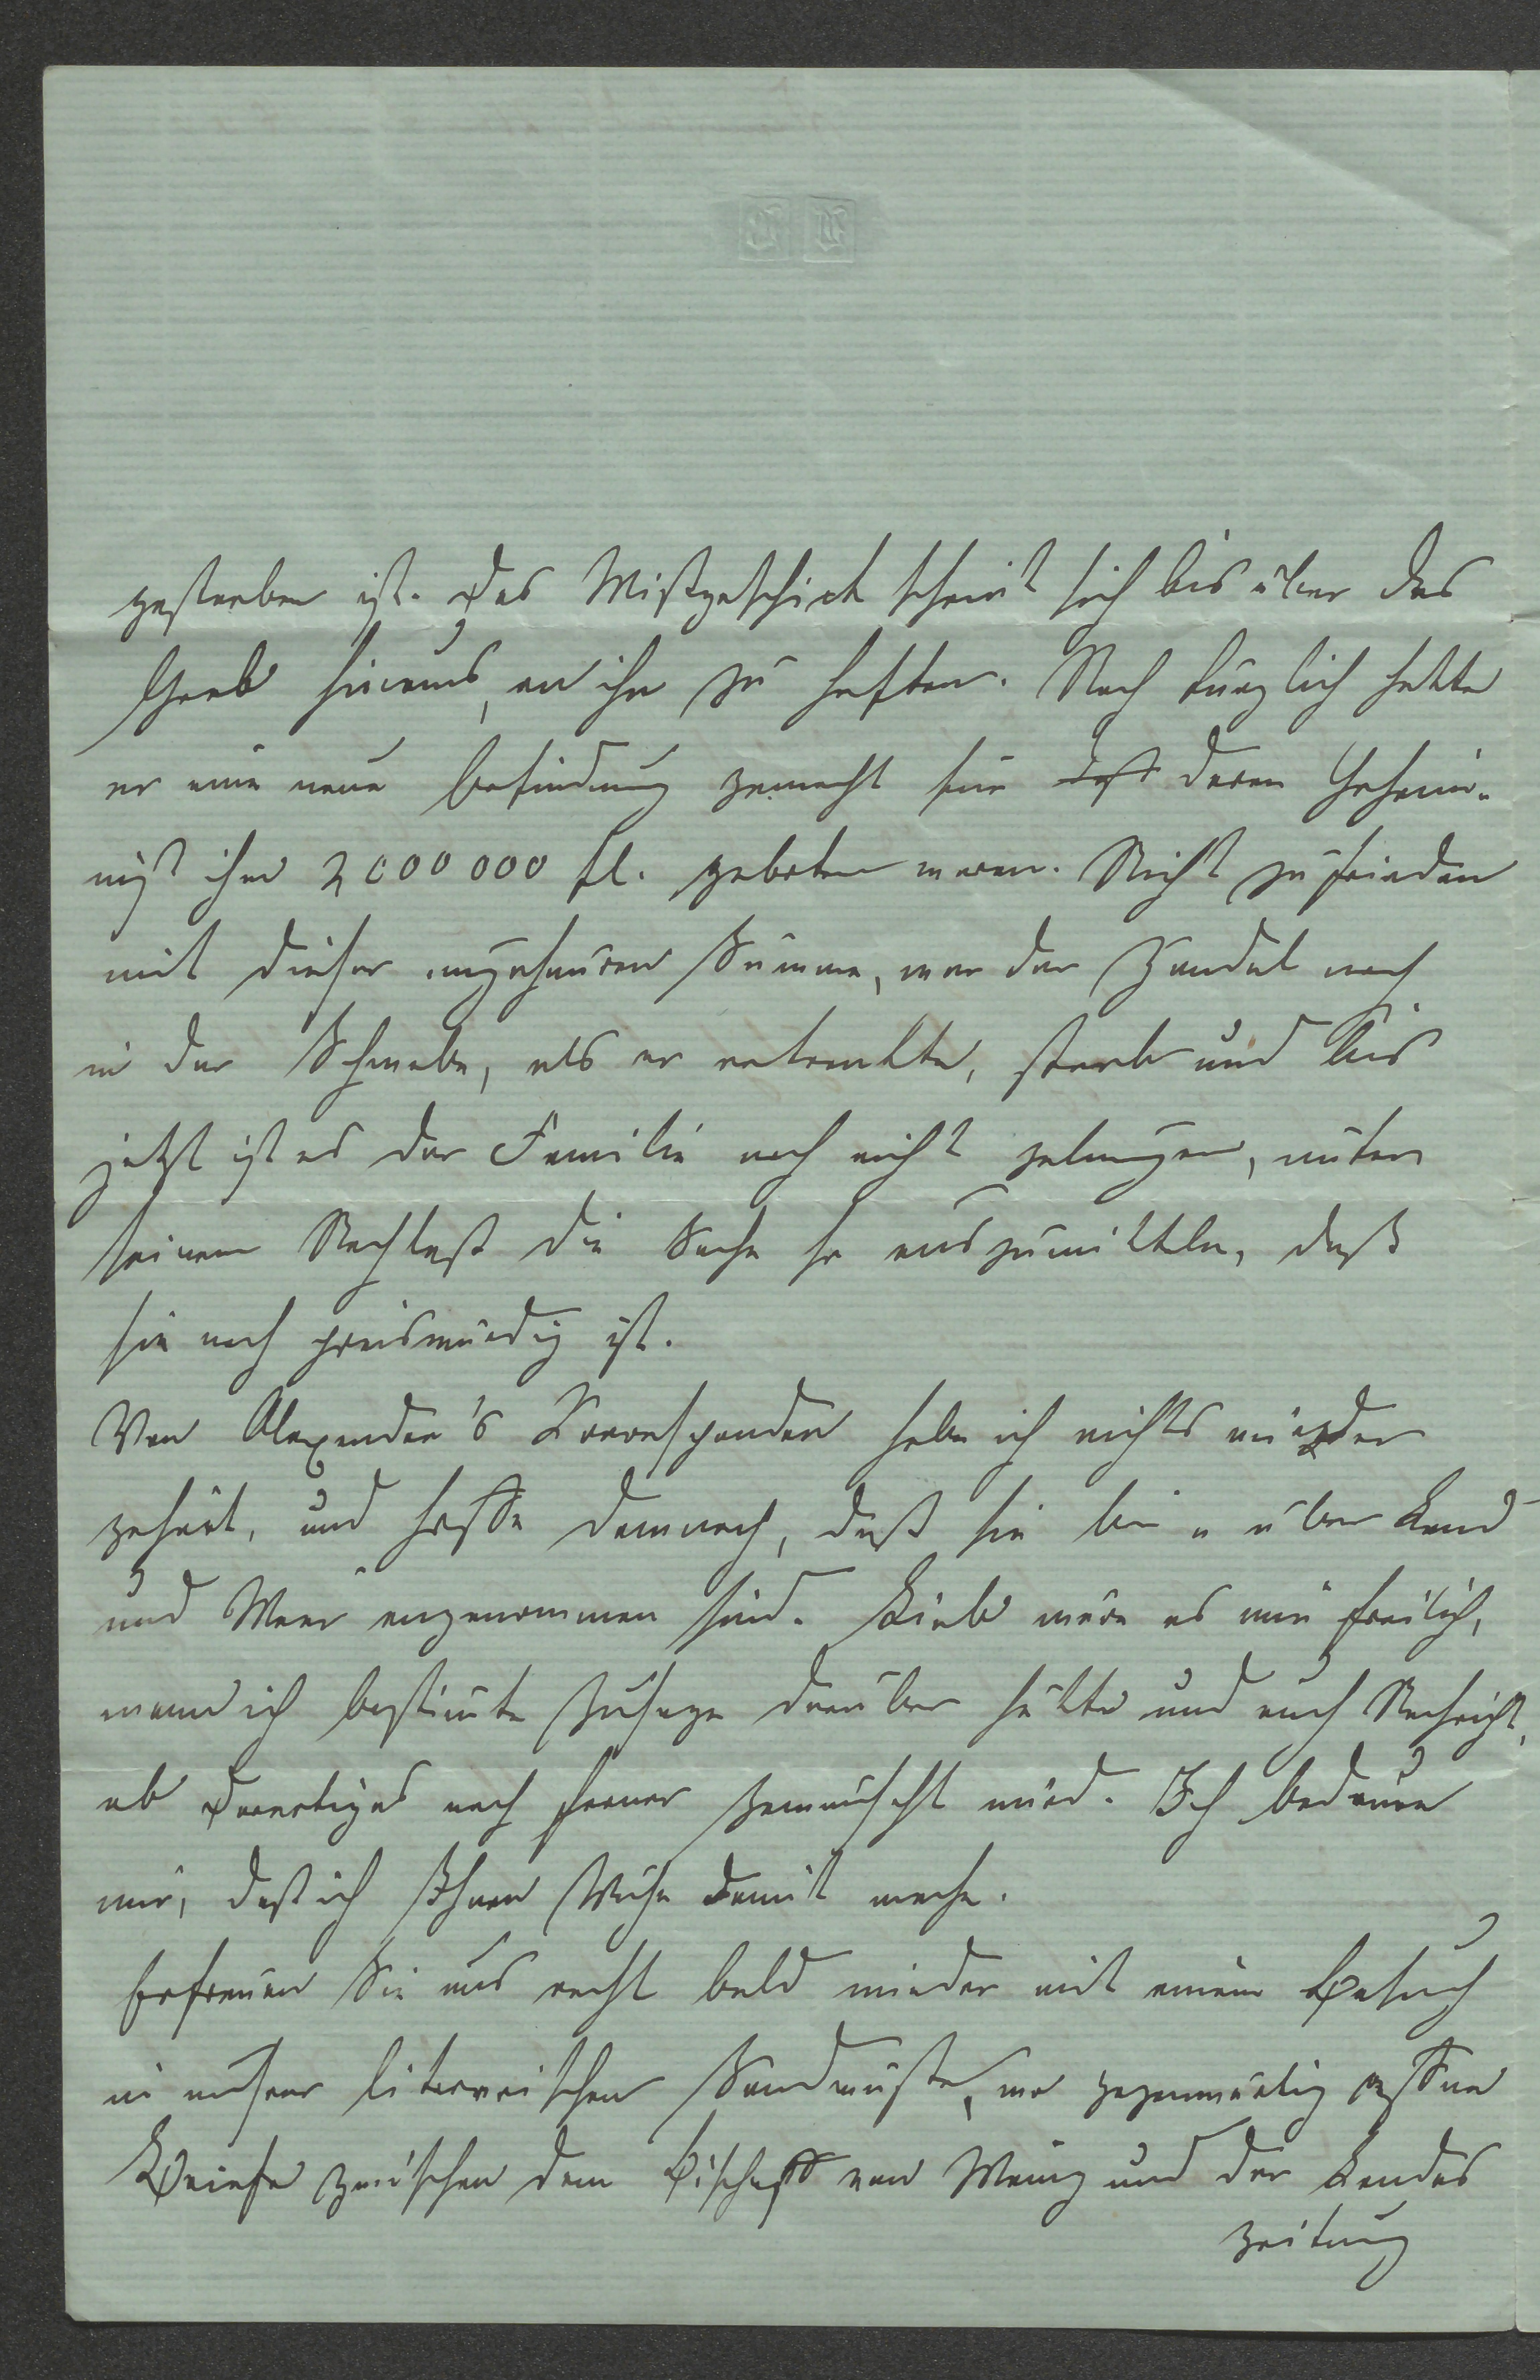 gestorben ist. Das Mißgeschick scheint sich bis über das
Grab hinaus, an ihn zu heften. Noch kürzlich hatte
er eine neue Erfindung gemacht für deren Geheim-
niß ihm 2000000 fl. geboten waren. Nicht zufrieden
mit dieser ungeheuren Summe, war der Handel noch
in der Schwebe, als er erkrankte, starb und bis
jetzt ist es der Familie noch nicht gelungen, unter
seinem Nachlaß die Sache so auszumitteln, daß
sie noch preiswürdig ist.
Von Alexander's Korrespondenzen habe ich nichts wieder
gehört, und hoffe demnach, daß sie bei „über Land
und Meer" angenommen sind. Lieb wäre es mir freilich,
wenn ich bestimmte Zusage darüber hätte und auch Nachricht,
ob Derartiges noch ferner gewünscht wird. Ich bedaure
nur, daß ich Ihnen Mühe damit mache.
Erfreuen Sie uns recht bald wieder mit einem Besuch
in unserer literarischen Sandwüste, wo gegenwärtig offene
Briefe zwischen dem Bischoff von Mainz und der Landes
zeitung